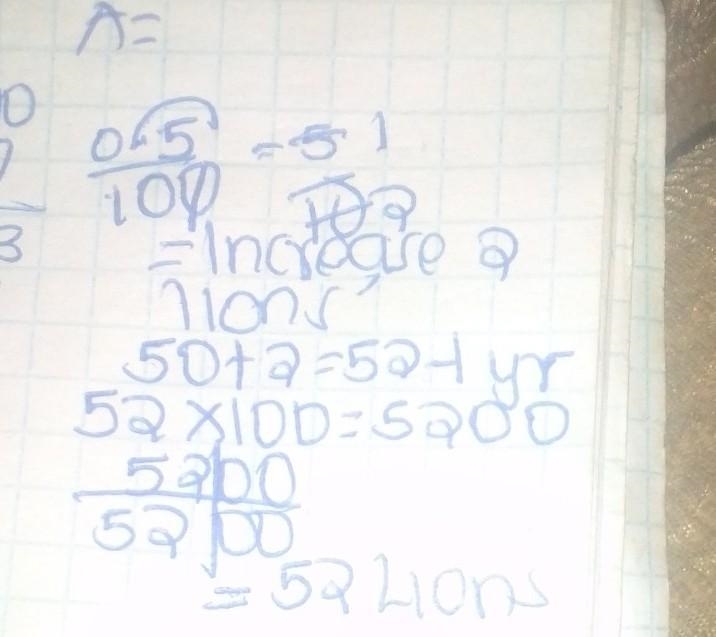 A=
0
0.5 = 5 1
100 10 2
3
= Increase 2
lions
50+2=52-1 yr
52 x100=5200
5200
5200
= 52 Lions